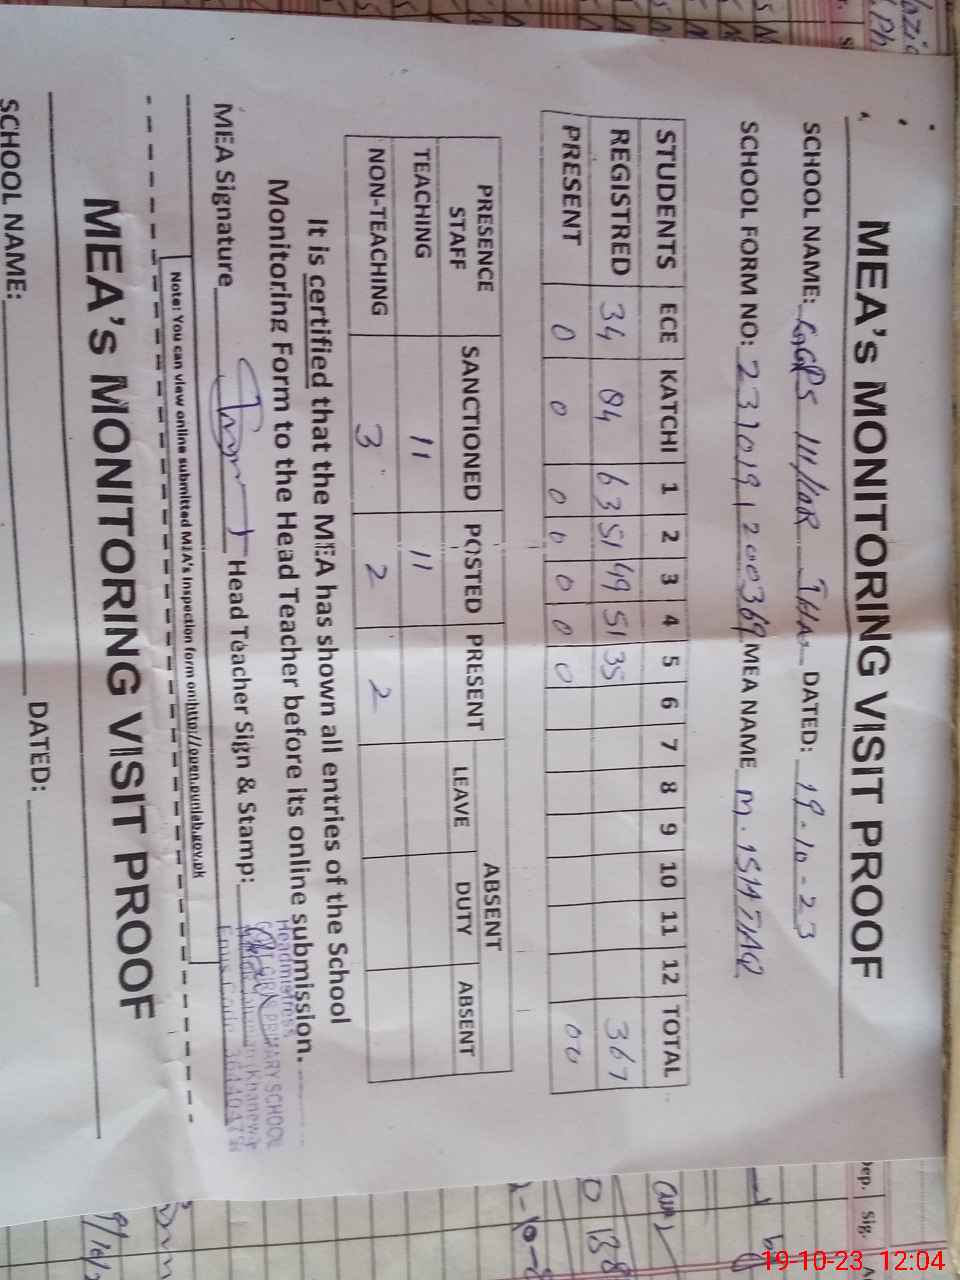 MEA's MONITORING VISIT PROOF
SCHOOL NAME: GGPS 111/10R DATED: 19-10-23
SCHOOL FORM NO: 2310191200369 MEA NAME M. ISHTIAQ
STUDENTS ECE KATCHI 1 2 3 4 5 6 7 8 9 10 11 12 TOTAL
REGISTRED 34 84 63 51 49 51 35 367
PRESENT 0 0 0 0 0 0 0 00
PRESENCE STAFF SANCTIONED POSTED PRESENT ABSENT
LEAVE DUTY ABSENT
TEACHING 11 11
NON-TEACHING 3 2 2
It is certified that the MEA has shown all entries of the School
Monitoring Form to the Head Teacher before its online submission.
MEA Signature Head Teacher Sign & Stamp:
Headmistress
GIRLS PRIMARY SCHOOL
(Khanewal)
Emis Code
Note: You can view online submitted MEA's inspection form on:http://open.punjab.gov.pk
MEA's MONITORING VISIT PROOF
SCHOOL NAME: DATED:
Sig.
19-10-23, 12:04